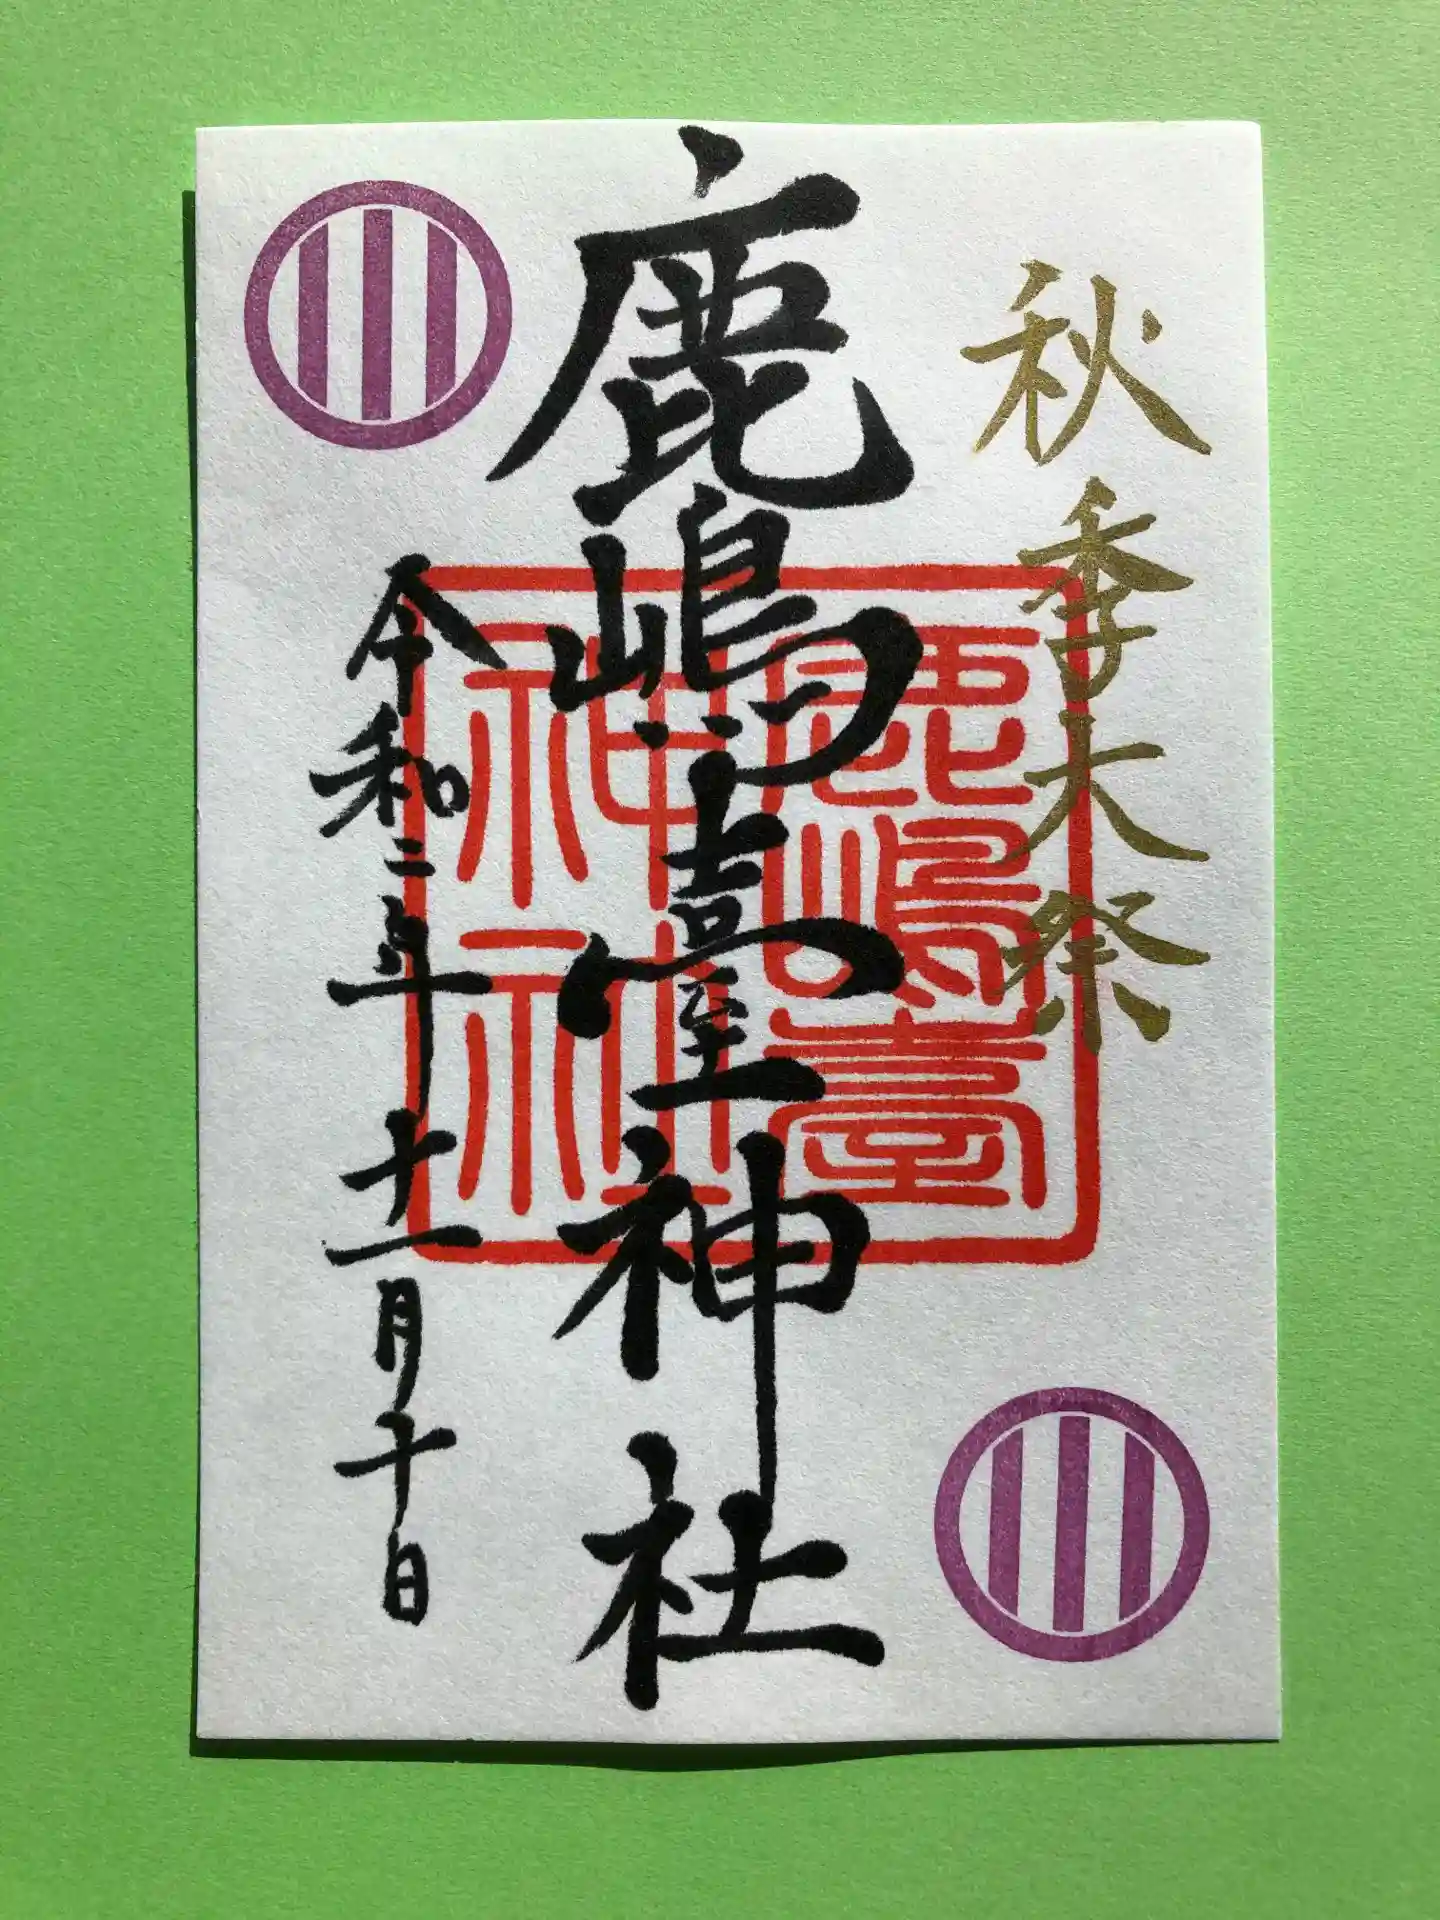 秋季大祭
鹿嶋臺神社
令和二年十一月十日
鹿嶋臺
神社